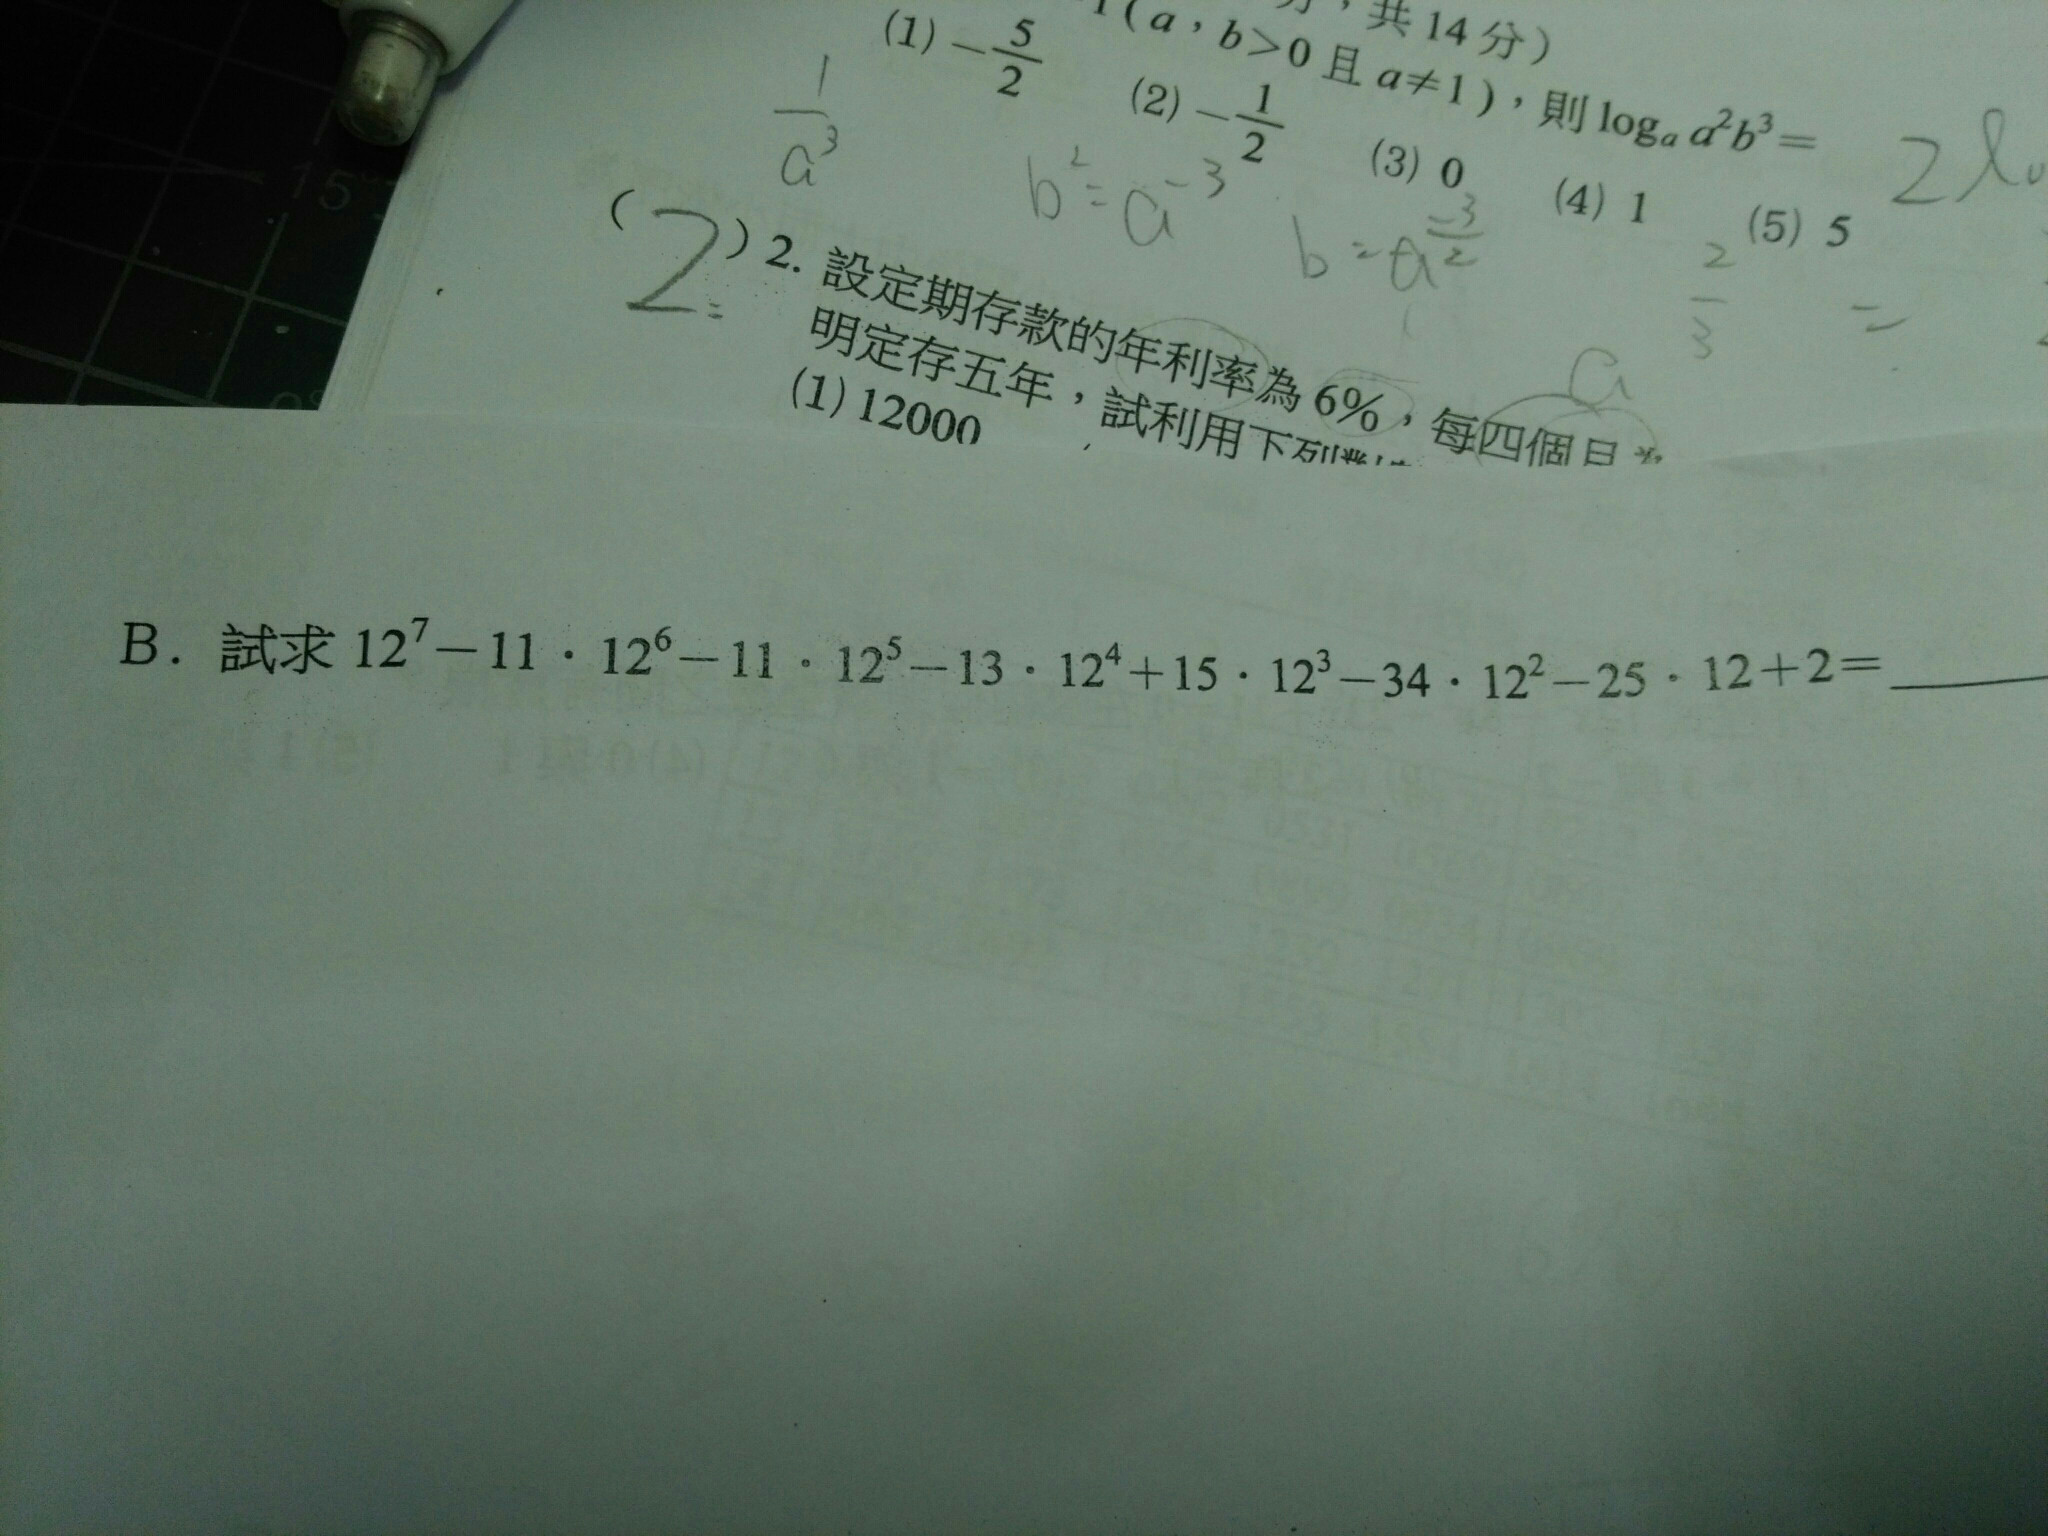 分,共14分)
1(a,b>0且a≠1),則logₐ a²b³=
(1) −5/2 (2) −1/2 (3) 0 (4) 1 (5) 5
1/a³
b²=a⁻³
b=a^(-3/2)
2/3
=
a
(2)2. 設定期存款的年利率為6%,每四個月
明定存五年,試利用下列
(1) 12000
B. 試求 12⁷−11·12⁶−11·12⁵−13·12⁴+15·12³−34·12²−25·12+2=